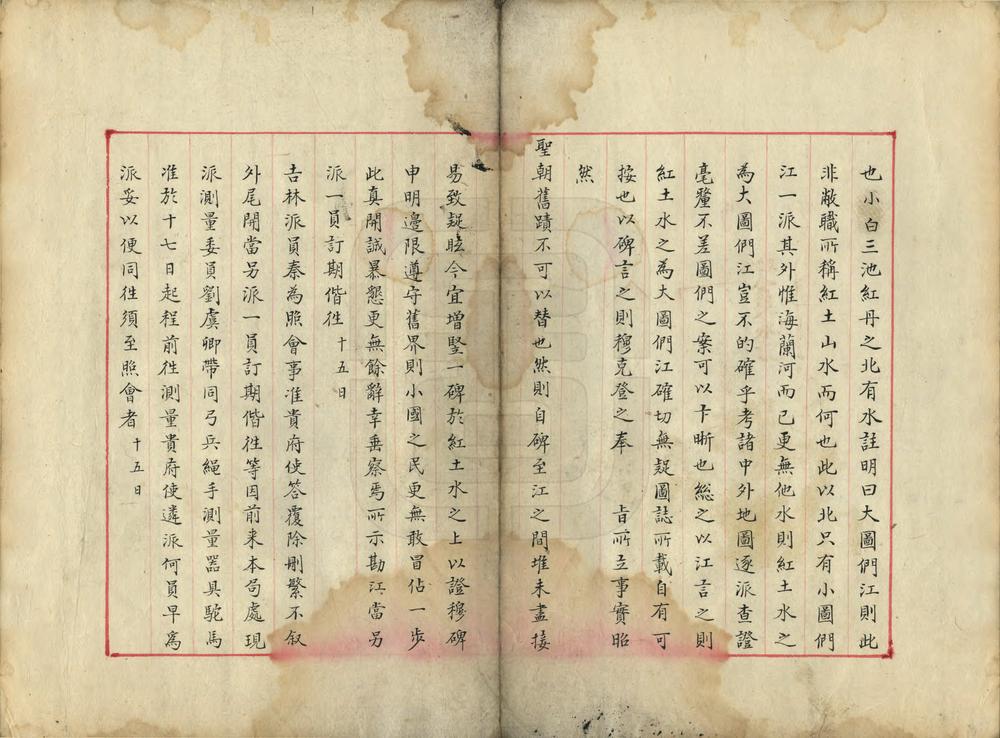 也小白三池紅丹之北有水註明曰大圖們江則此
非敝職所稱紅土山水而何也此以北只有小圖們
江一派其外惟海蘭河而已更無他水則紅土水之
為大圖們江豈不的確乎考諸中外地圖逐派查證
毫釐不差圖們之案可以卞晣也総之以江言之則
紅土水之為大圖們江確切無疑圖誌所載自有可
按也以碑言之則穆克登之奉 旨所立事實昭
然
聖朝舊蹟不可以替也然則自碑至江之間堆未盡接
易致疑眩今宜增竪一碑於紅土水之上以證穆碑
申明邊限遵守舊界則小國之民更無敢冒佔一步
此真開誠暴懇更無餘辭幸垂察焉所示勘江當另
派一員訂期偕徃 十五日
吉林派員秦為照會事准貴府使答覆除刪繁不叙
外尾開當另派一員訂期偕徃等因前来本局處現
派測量委員劉虞卿帶同弓兵繩手測量器具駝馬
准於十七日起程前徃測量貴府使遴派何員早為
派妥以便同徃須至照會者 十五日